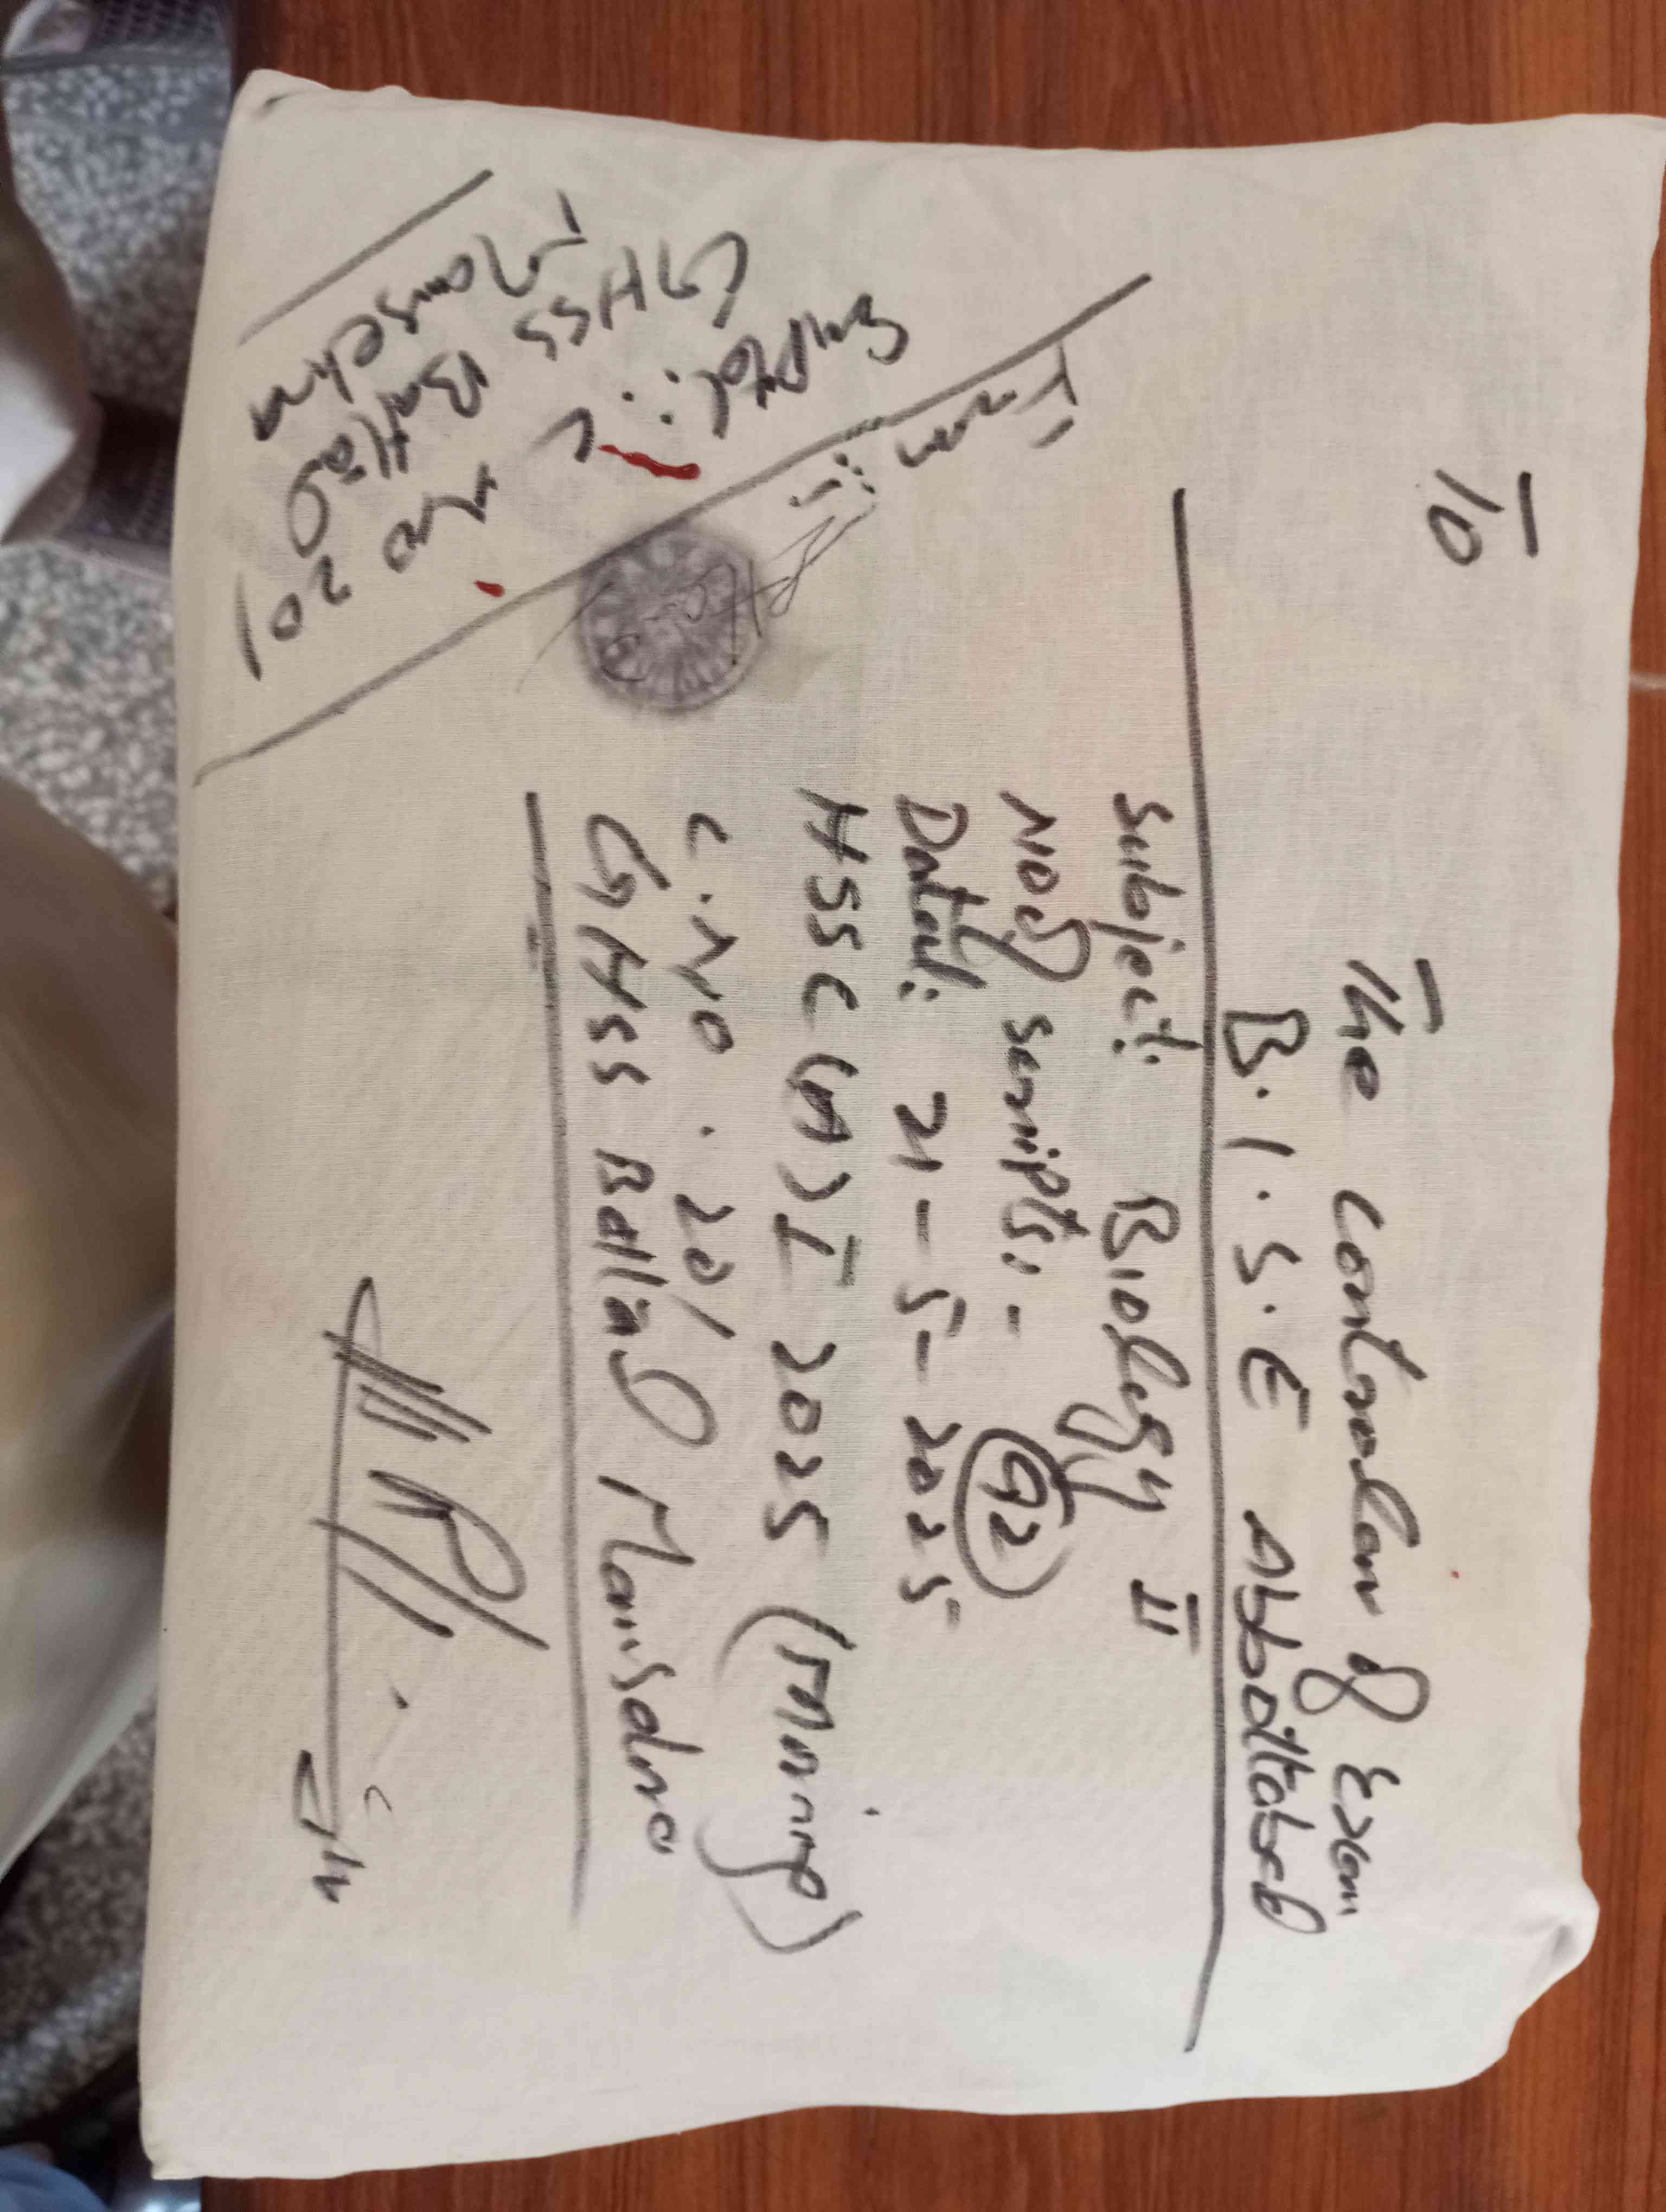 To
The Controler of Exam
B.I.S.E Abbottabad
Subject: Biology II
No of scripts: - 92
Dated: 21-5-2025
HSSC (A) I 2025 (Morning)
C.No. 201
GHSS Battal Mansehra
From
Suptd:
GHSS Battal
Mansehra
C No 201